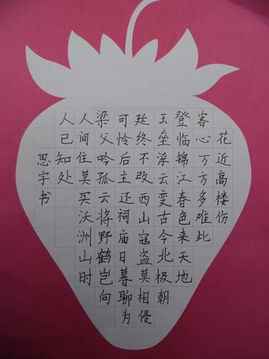 花近高楼伤
客心万方多难此
登临锦江春色来天地
玉垒浮云变古今北极朝
廷终不改西山寇盗莫相侵
可怜后主还祠庙日暮聊为
梁父吟孤云将野鹤岂向
人间住莫买沃洲山时
人已知处
思宇书